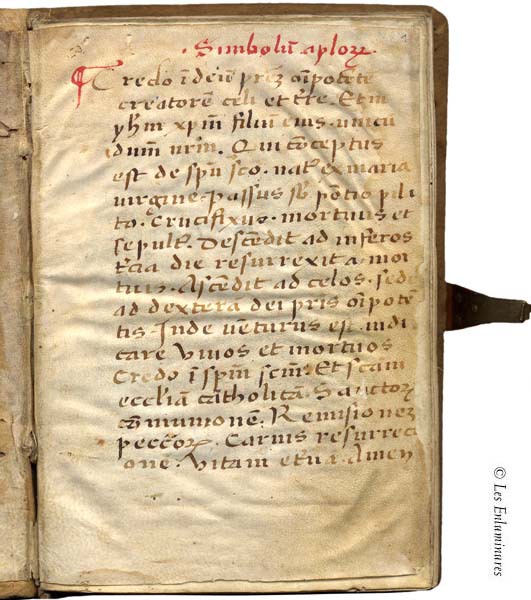 · Simbolū aploꝝ ·
Credo ī deū prēʒ oīpotēte
creatorē celi et tr̄e. Et in
yhm̄ xpm̄ filiuʒ eius · unicu
dum̄ nrm̄. Qui conceptus
est de spū sc̄o. natꝰ ex maria
virgine. passus sb̄ pontio pila
to. Crucifixus. mortuus et
sepultꝰ. Descēdit ad inferos
tercia die resurrexit a mor
tuis. Ascēdit ad celos. sedet
ad dexterā dei pr̄is oīpotē
tis Inde vēturus est iudi
care Vivos et mortuos
Credo ī spm̄ scm̄. Et scam
eccliā catholicā. Sanctoꝝ
cōmunionē. Remisioneʒ
peccōꝝ. Carnis resurrecti
one. Vitam etn̄a. Amen
© Les Enluminures